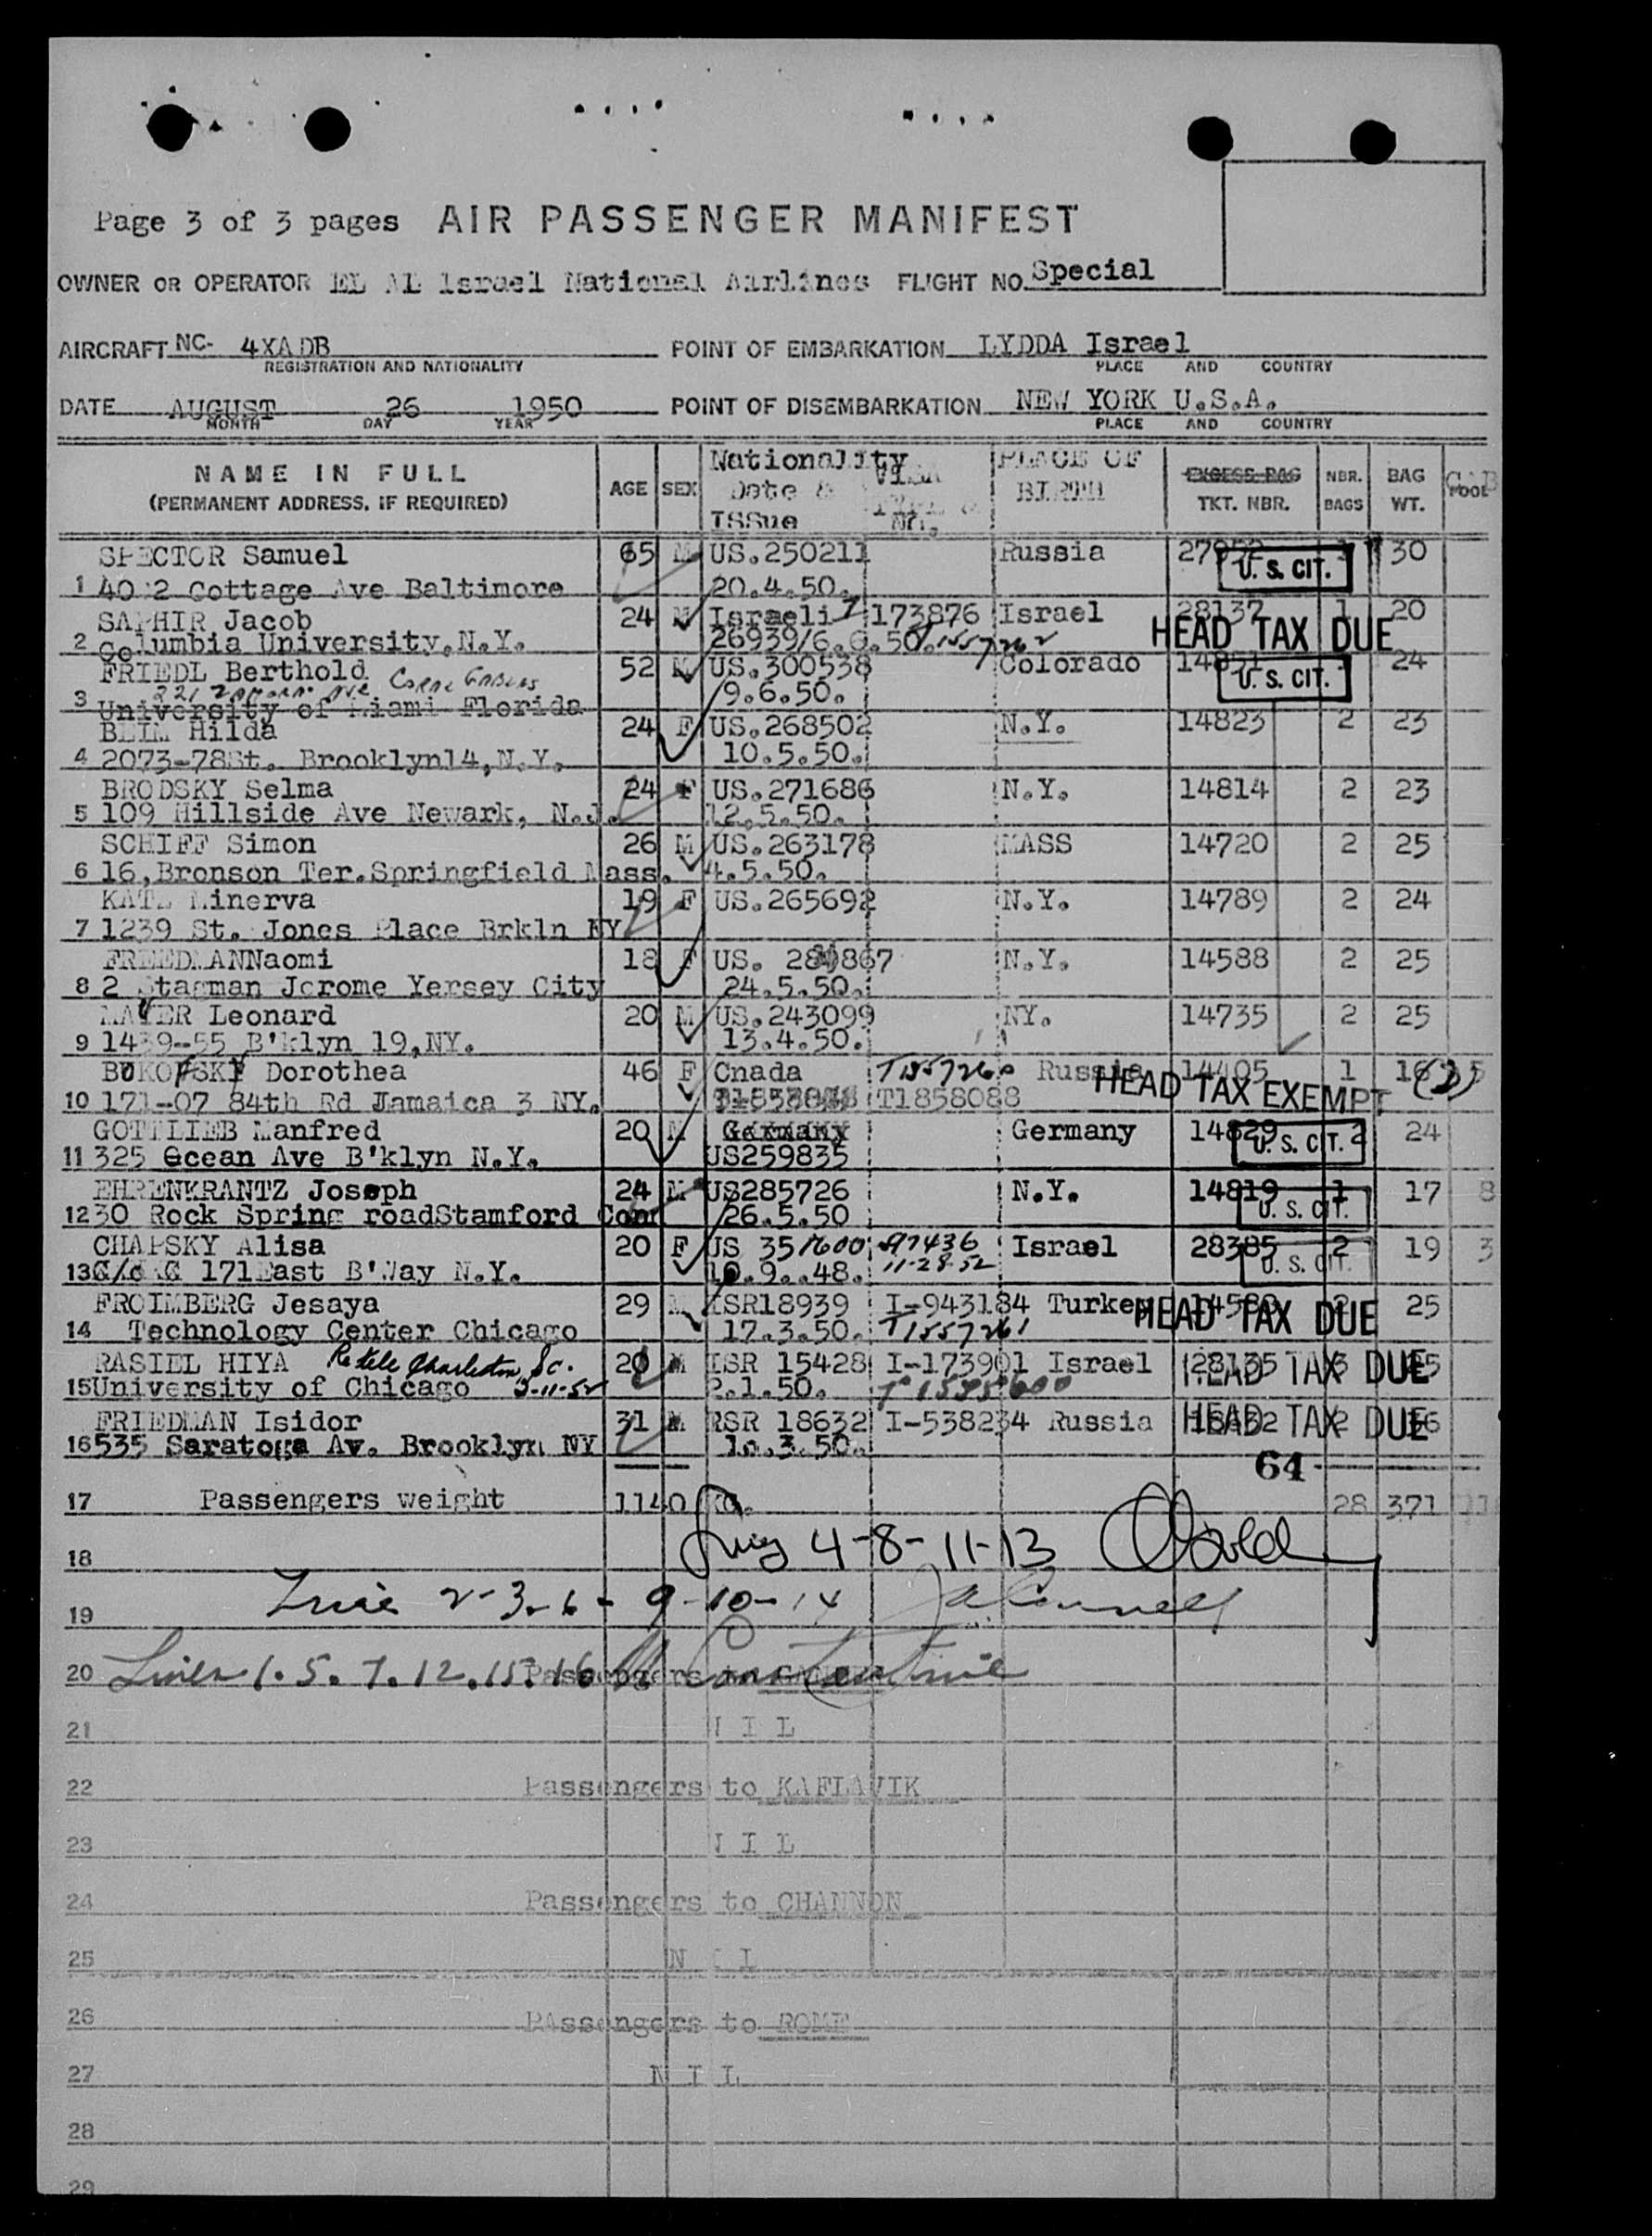 Page 3 of 3 pages AIR PASSENGER MANIFEST
OWNER OR OPERATOR EL AL Israel National Airlines FLIGHT NO. Special
AIRCRAFT NC- 4XADB POINT OF EMBARKATION LYDDA Israel
REGISTRATION AND NATIONALITY PLACE AND COUNTRY
DATE AUGUST 26 1950 POINT OF DISEMBARKATION NEW YORK U.S.A.
MONTH DAY YEAR PLACE AND COUNTRY
NAME IN FULL
(PERMANENT ADDRESS, IF REQUIRED)
AGE SEX
Nationality
Date & VISA
ISSue No.
PLACE OF
BIRTH
EXCESS BAG
TKT. NBR.
NBR.
BAGS
BAG
WT.
SPECTOR Samuel 65 M US.250211 Russia 30
1 Cottage Ave Baltimore 20.4.50. U. S. CIT.
SAPHIR Jacob 24 M Israeli I-173876 Israel 28137 1 20
2 Columbia University, N.Y. 26939/6. .50. HEAD TAX DUE
FRIEDL Berthold 52 M US.300538 Colorado 24
221 Ave Coral Gables U. S. CIT.
3 University of Miami Florida 9.6.50.
Hilda 24 F US.268502 N.Y. 14823 2 23
4 2073-78St. Brooklyn14,N.Y. 10.5.50.
BRODSKY Selma 24 F US.271686 N.Y. 14814 2 23
5 109 Hillside Ave Newark, N.J. 12.5.50.
SCHIFF Simon 26 M US.263178 MASS 14720 2 25
6 16,Bronson Ter.Springfield Mass. 4.5.50.
KATZ Minerva 19 F US.265692 N.Y. 14789 2 24
7 1239 St. Jones Place Brkln NY
FREEDMANNaomi 18 F US. N.Y. 14588 2 25
8 2 Stagman Jerome Yersey City 24.5.50.
MAYER Leonard 20 M US.243099 NY. 14735 2 25
9 B'klyn 19,NY. 13.4.50.
BUKOFSKY Dorothea 46 F Cnada T1557260 Russia 14405 1 16
10 171-07 84th Rd Jamaica 3 NY. T1858088 HEAD TAX EXEMPT
GOTTLIEB Manfred 20 M Germany Germany 14829 2 24
11 325 Ocean Ave B'klyn N.Y. US259835 U. S. CIT.
EHRENKRANTZ Joseph 24 M US285726 N.Y. 14819 1 17 8
12 30 Rock Spring roadStamford Conn 26.5.50 U. S. CIT.
CHAPSKY Alisa 20 F US 351600 97436 Israel 28385 2 19 3
13 171East B'Way N.Y. 10.9..48. 11-28-52 U. S. CIT.
FROIMBERG Jesaya 29 M ISR18939 I-943184 Turkey 25
14 Technology Center Chicago 17.3.50. T1557261 HEAD TAX DUE
RASIEL HIYA Charleston, SC. 20 M ISR 15428 I-173901 Israel 28135 3
15 University of Chicago 3-11-52 2.1.50. HEAD TAX DUE
FRIEDMAN Isidor 31 M RSR 18632 I-538234 Russia 2
16 535 Saratoga Av. Brooklyn NY 10.3.50. HEAD TAX DUE
64
17 Passengers weight 1140 KG. 28 371
18 4-8-11-13
19 2-3-6-9-10-14
20 Lines 1.5.7.12.15.16 Passengers to
21 N I L
22 Passengers to KAFLAVIK
23 N I L
24 Passengers to CHANNON
25 N I L
26 PAssengers to ROME
27 N I L
28
29